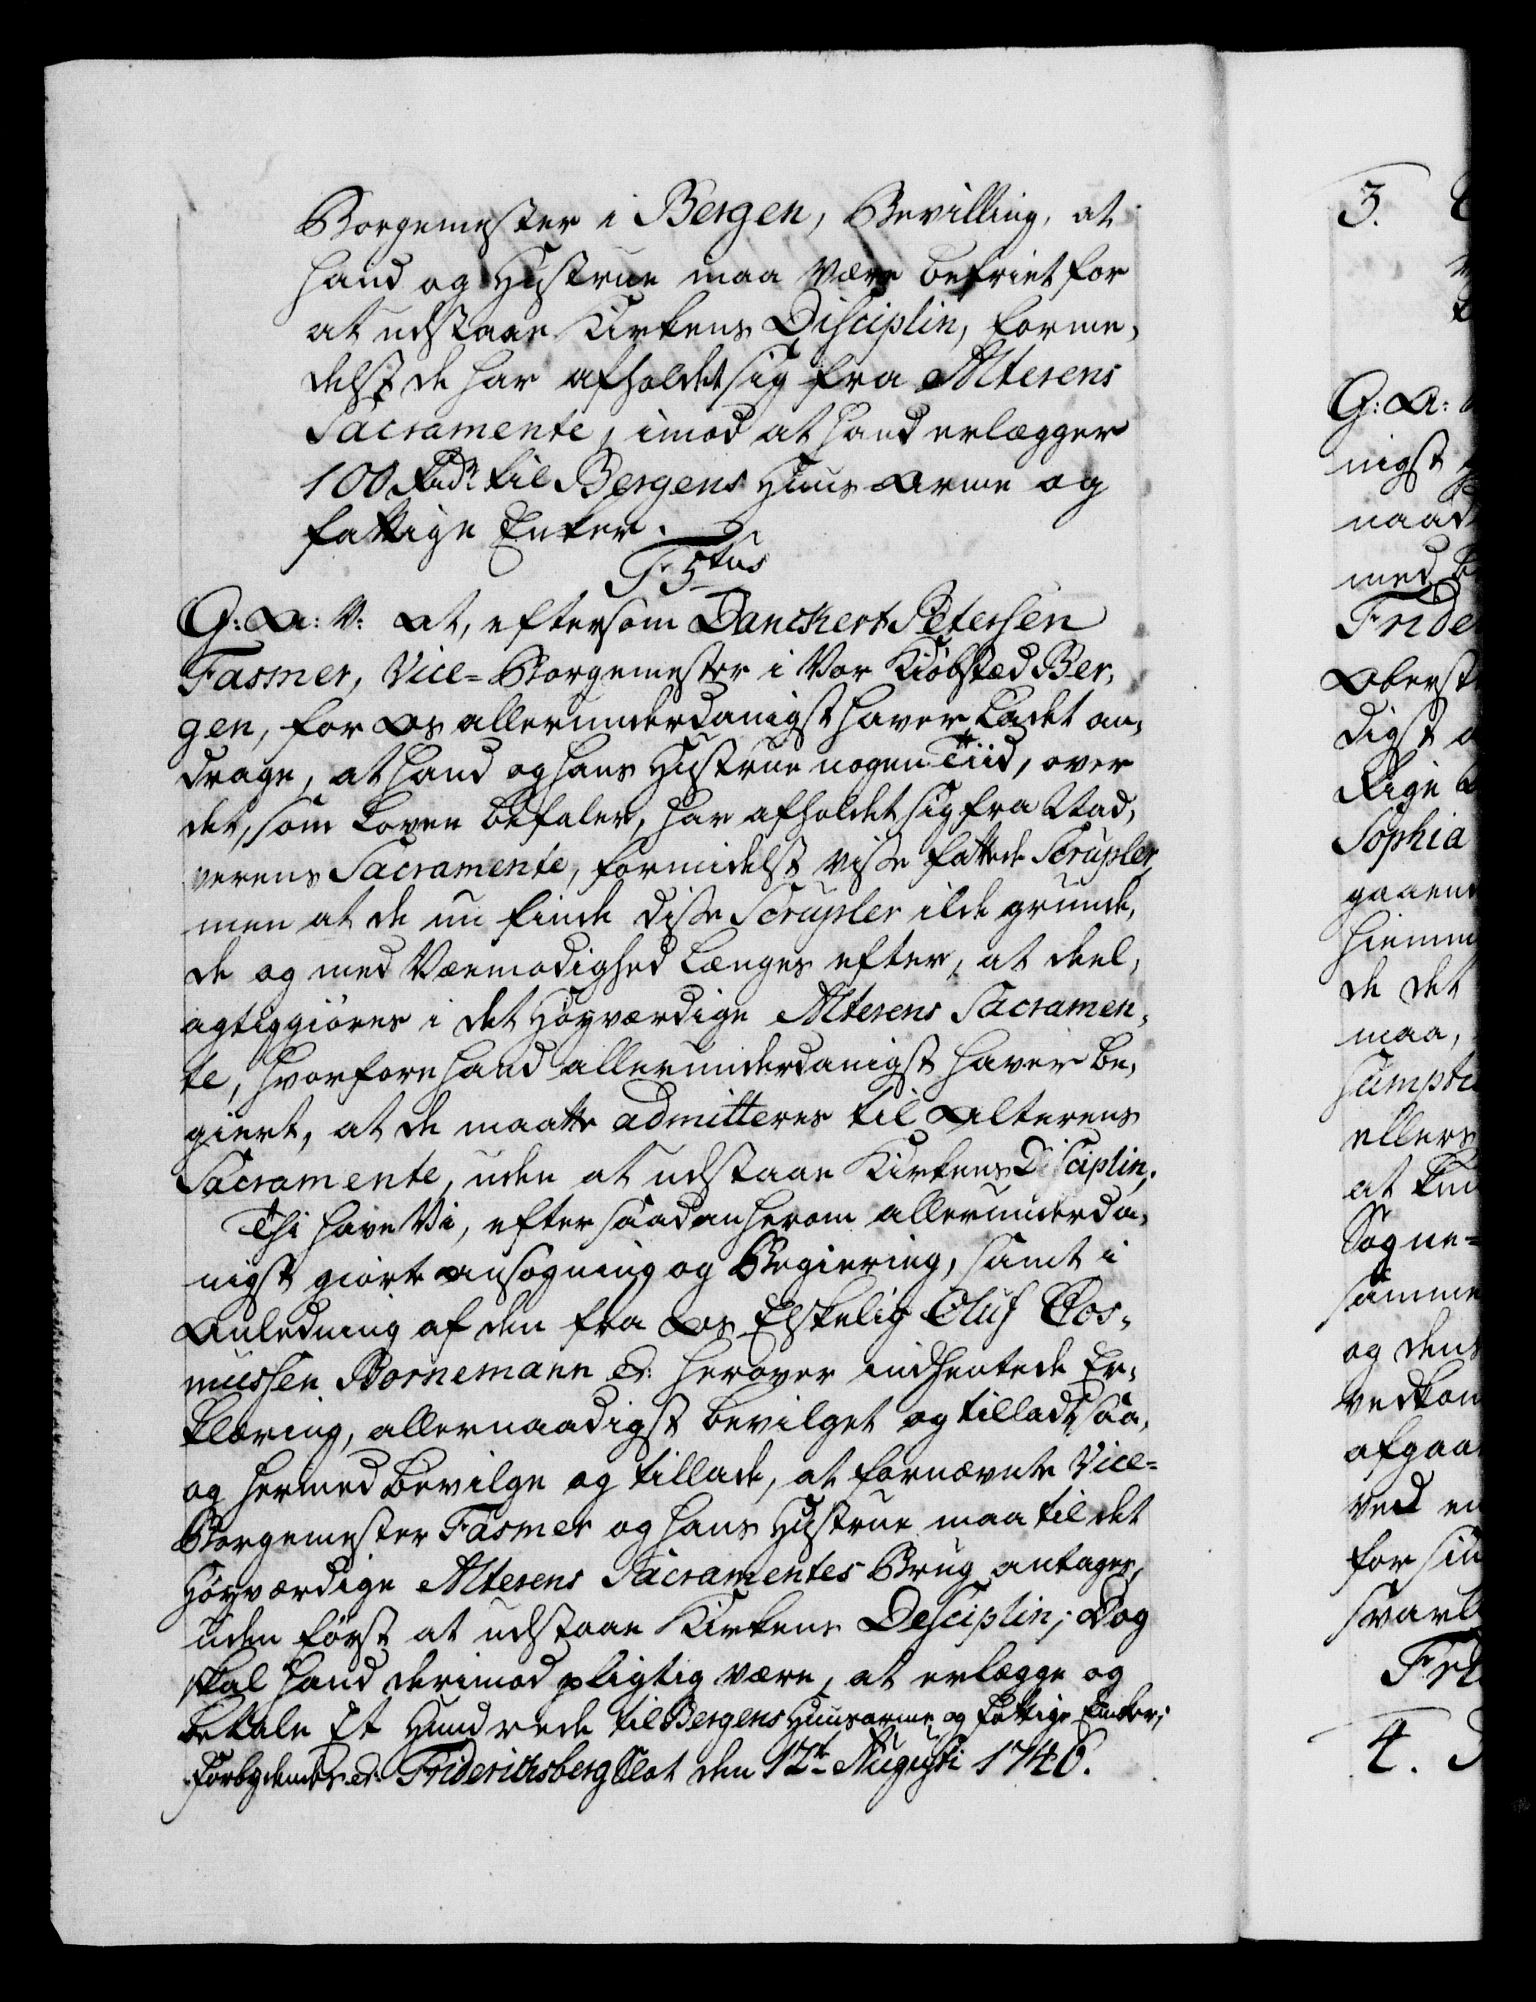 Borgemester i Bergen, Bevilling, at
hand og Hustrue maa være befriet for
at udstaae Kirkens Disciplin, forme,
delst de har afholdet sig fra Alterens
Sacramente, imod at hand erlægger
100 Rdr til Bergens Huus Arme og
fattige Enker.
F: 5tus
G: A: V: At, eftersom Danckert Petersen
Fasmer, Vice-Borgemester i Vor Kiøbsted Ber,
gen, for Os allerunderdanigst haver ladet an,
drage, at hand og hans Hustrue nogen Tiid, over
det, som Loven befaler, har afholdet sig fra Nad,
verens Sacramente, formedelst visse fattede Scrupler,
men at de nu finde disse Scrupler ilde grunde,
de og med Veemodighed længes efter, at deel,
agtiggiøres i det Høyværdige Alterens Sacramen,
te, hvorfore hand allerunderdanigst haver be,
giert, at de maatte admitteres til Alterens
Sacramente, uden at udstaae Kirkens Disciplin;
Thi have Vi, efter saadan herom allerunderda,
nigst giorte Ansøgning og Begiering, samt i
Anledning af den fra Os Elskelig Oluf Cos,
mussen Bornemann &: herover indhentede Er,
klæring, allernaadigst bevilget og tilladt, saa,
og hermed bevilge og tillade, at fornævnte Vice-
Borgemester Fasmer og hans Hustrue maa til det
Høyværdige Alterens Sacramentes Brug antages,
uden først at udstaae Kirkens Desciplin; Dog
skal hand derimod pligtig være, at erlægge og
betale Et Hundrede til Bergens Huusarme og fattige Enker;
Forbydendes &: Friderichsberg Slot den 12te Augusti 1746.
3.
G: A:
nigst
naad
med
Fride
Oberst
digst
Rige
Sophia
gaaend
hiemm
de det
maa,
sumpti
ellers
at
Sogne=
samme
og dens
vedkom
afgaa
ved en
for sin
svarl
Fri
4.